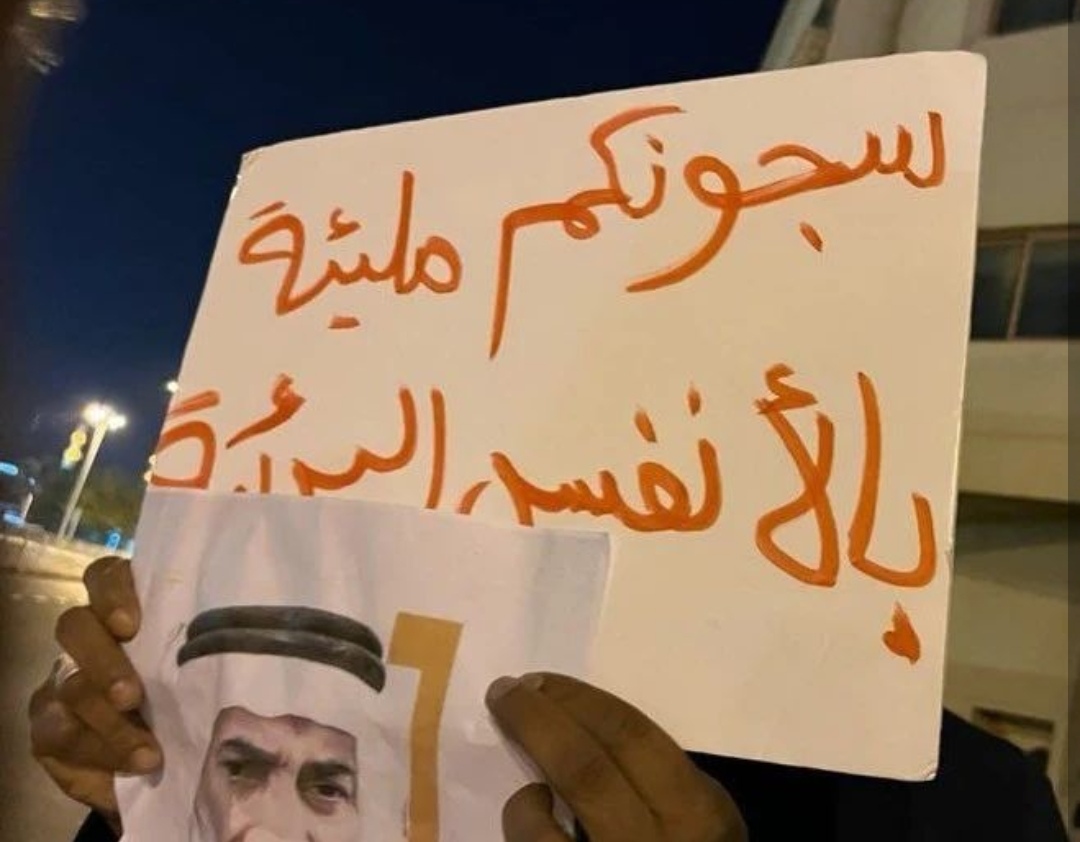 سجونكم مليئة
بالأنفس البريئة